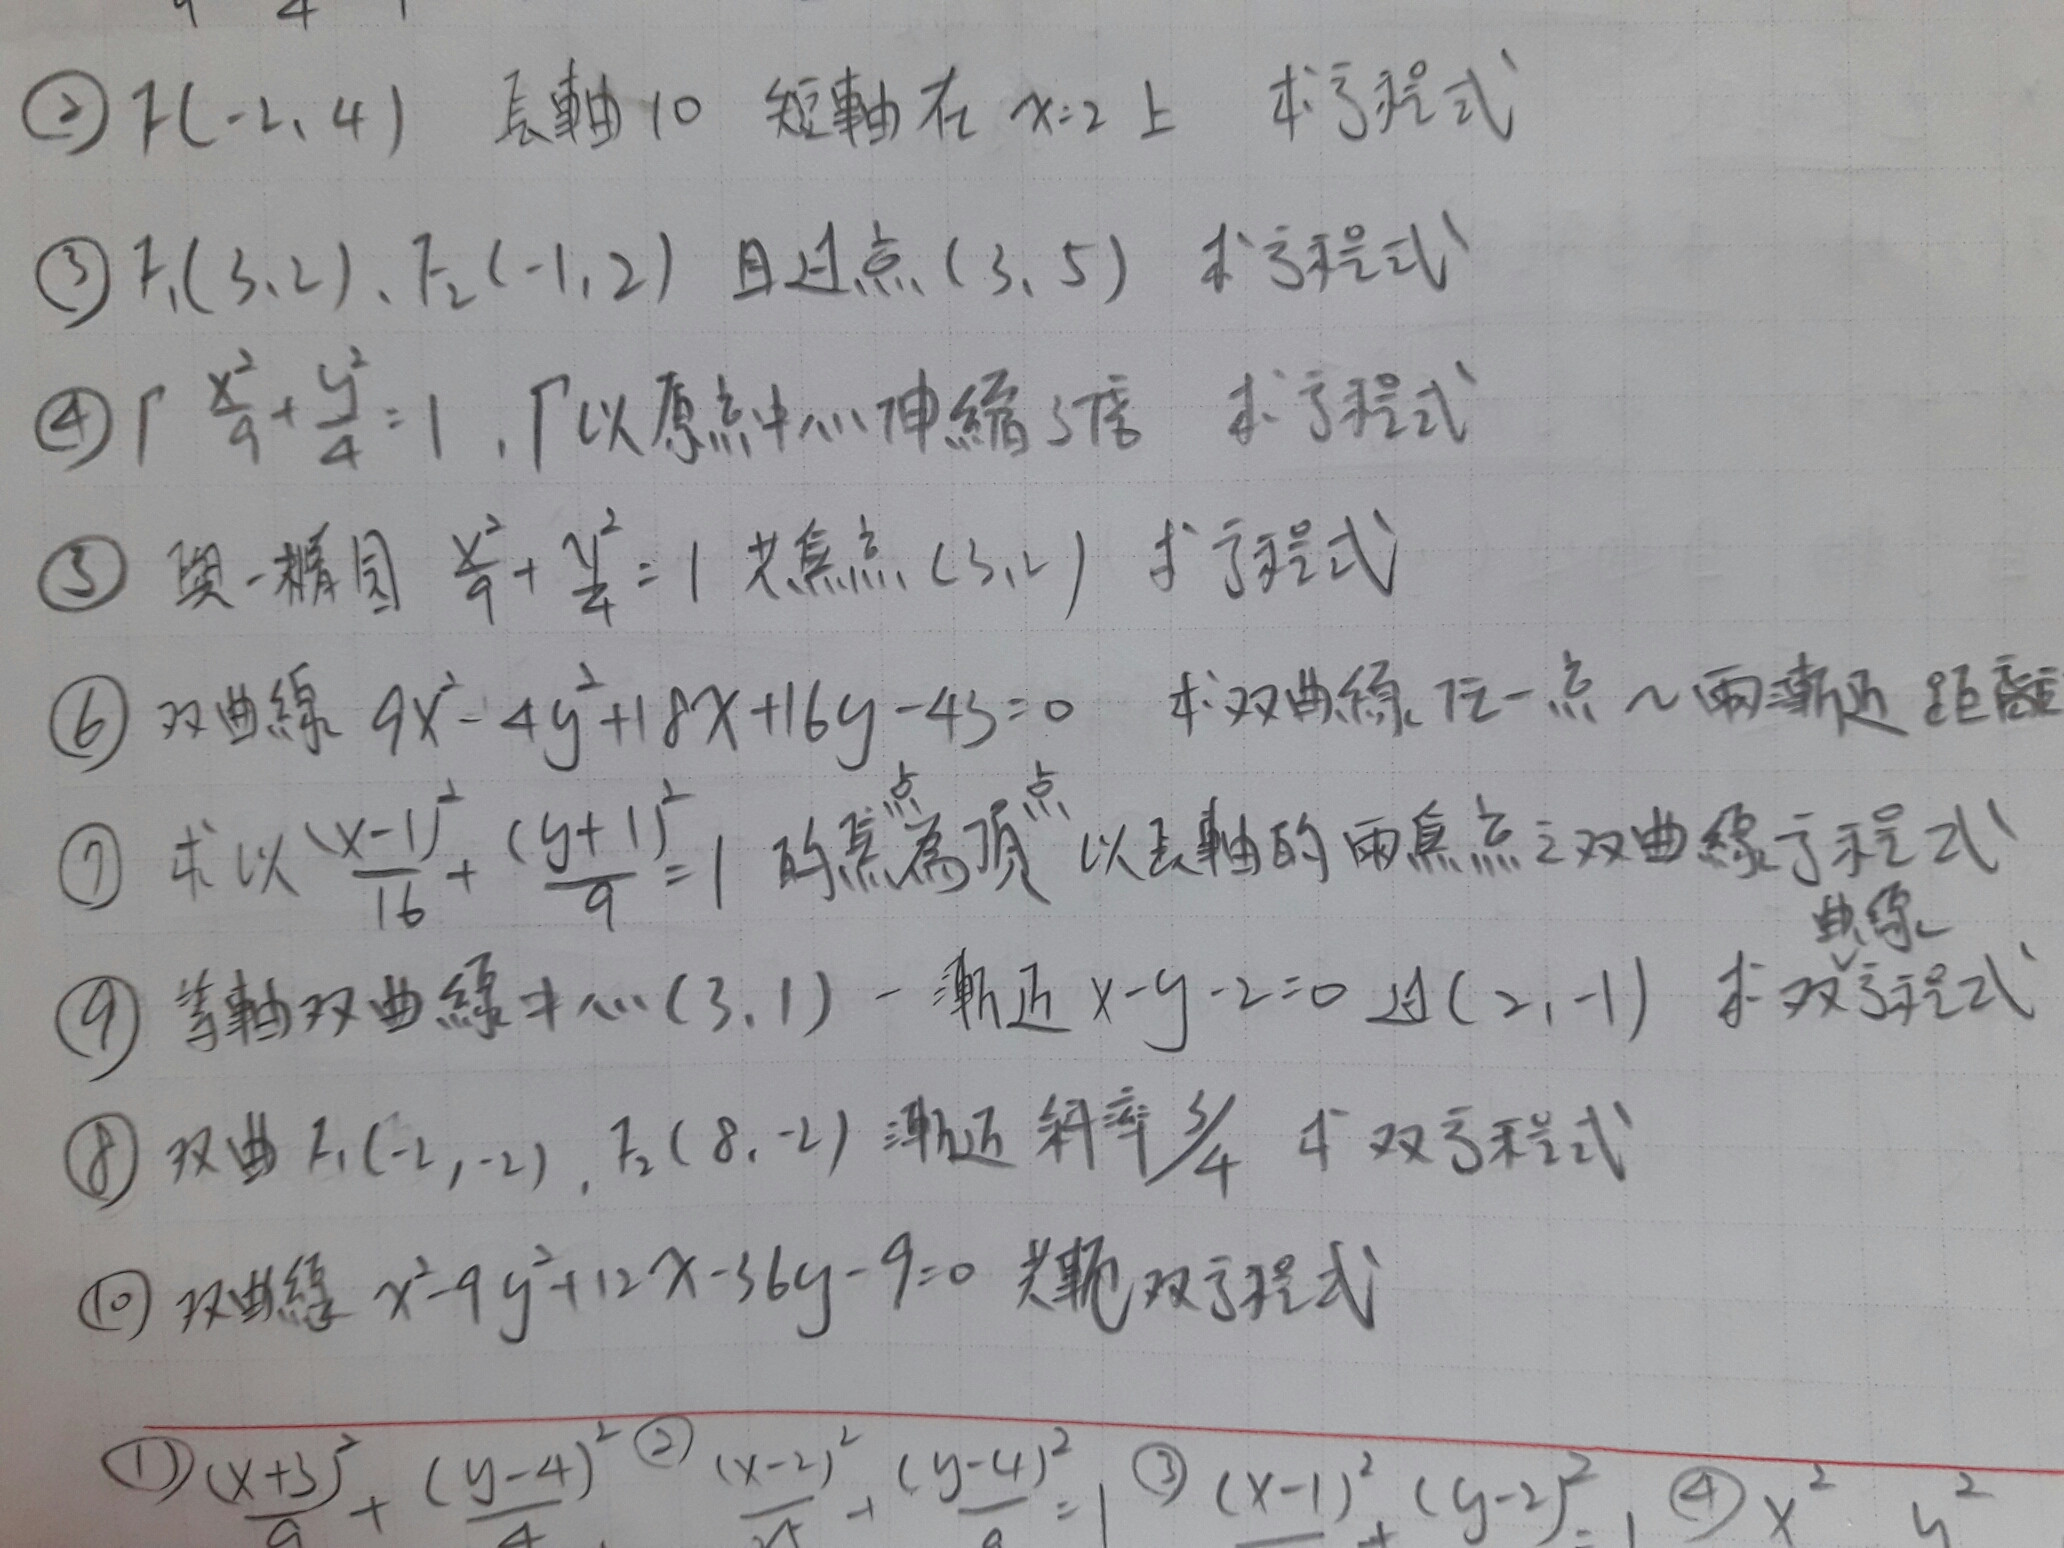 ② F(-2, 4) 長軸10 短軸在 x=2 上 求方程式
③ F₁(3, 2)、F₂(-1, 2) 且过点 (3, 5) 求方程式
④ Γ x²/9 + y²/4 = 1 , Γ以原点中心伸縮3倍 求方程式
⑤ 與一橢圓 x²/9 + y²/4 = 1 共焦点 (3, 2) 求方程式
⑥ 双曲線 9x²-4y²+18x+16y-43=0 求双曲線任一点~兩漸近距離
⑦ 求以 (x-1)²/16 + (y+1)²/9 = 1 的焦点為頂点 以長軸的兩焦点之双曲線方程式
⑨ 等軸双曲線中心(3, 1) 一漸近 x-y-2=0 过(2, -1) 求双曲線方程式
⑧ 双曲 F₁(-2, -2), F₂(8, -2) 漸近斜率 3/4 求双方程式
⑩ 双曲線 x²-9y²+12x-36y-9=0 共軛双方程式
① (x+3)²/9 + (y-4)²/4 ② (x-2)² + (y-4)²/9 = 1 ③ (x-1)² + (y-2)² = 1 ④ x² y²